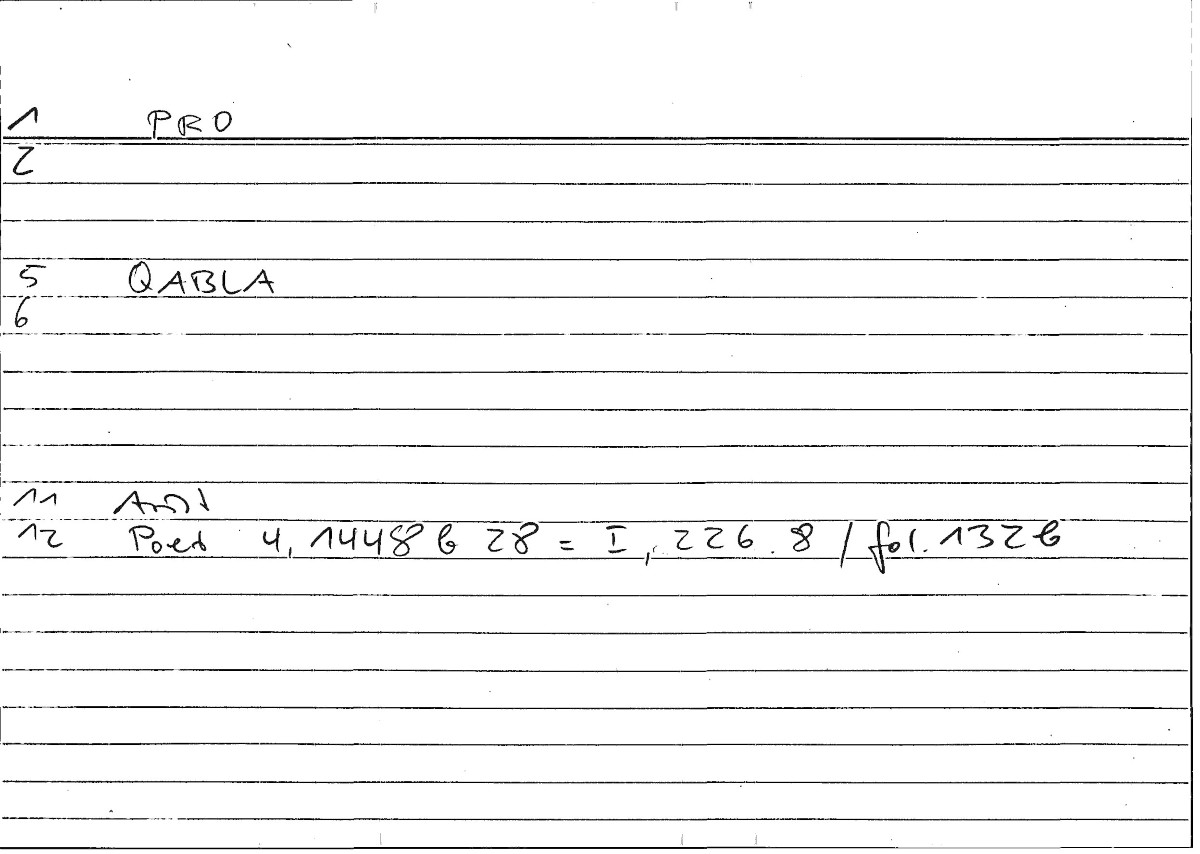 1 PRO
2
5 QABLA
6
11 Arist
12 Poet 4, 1448 b 28 = I, 226.8 / fol. 132b